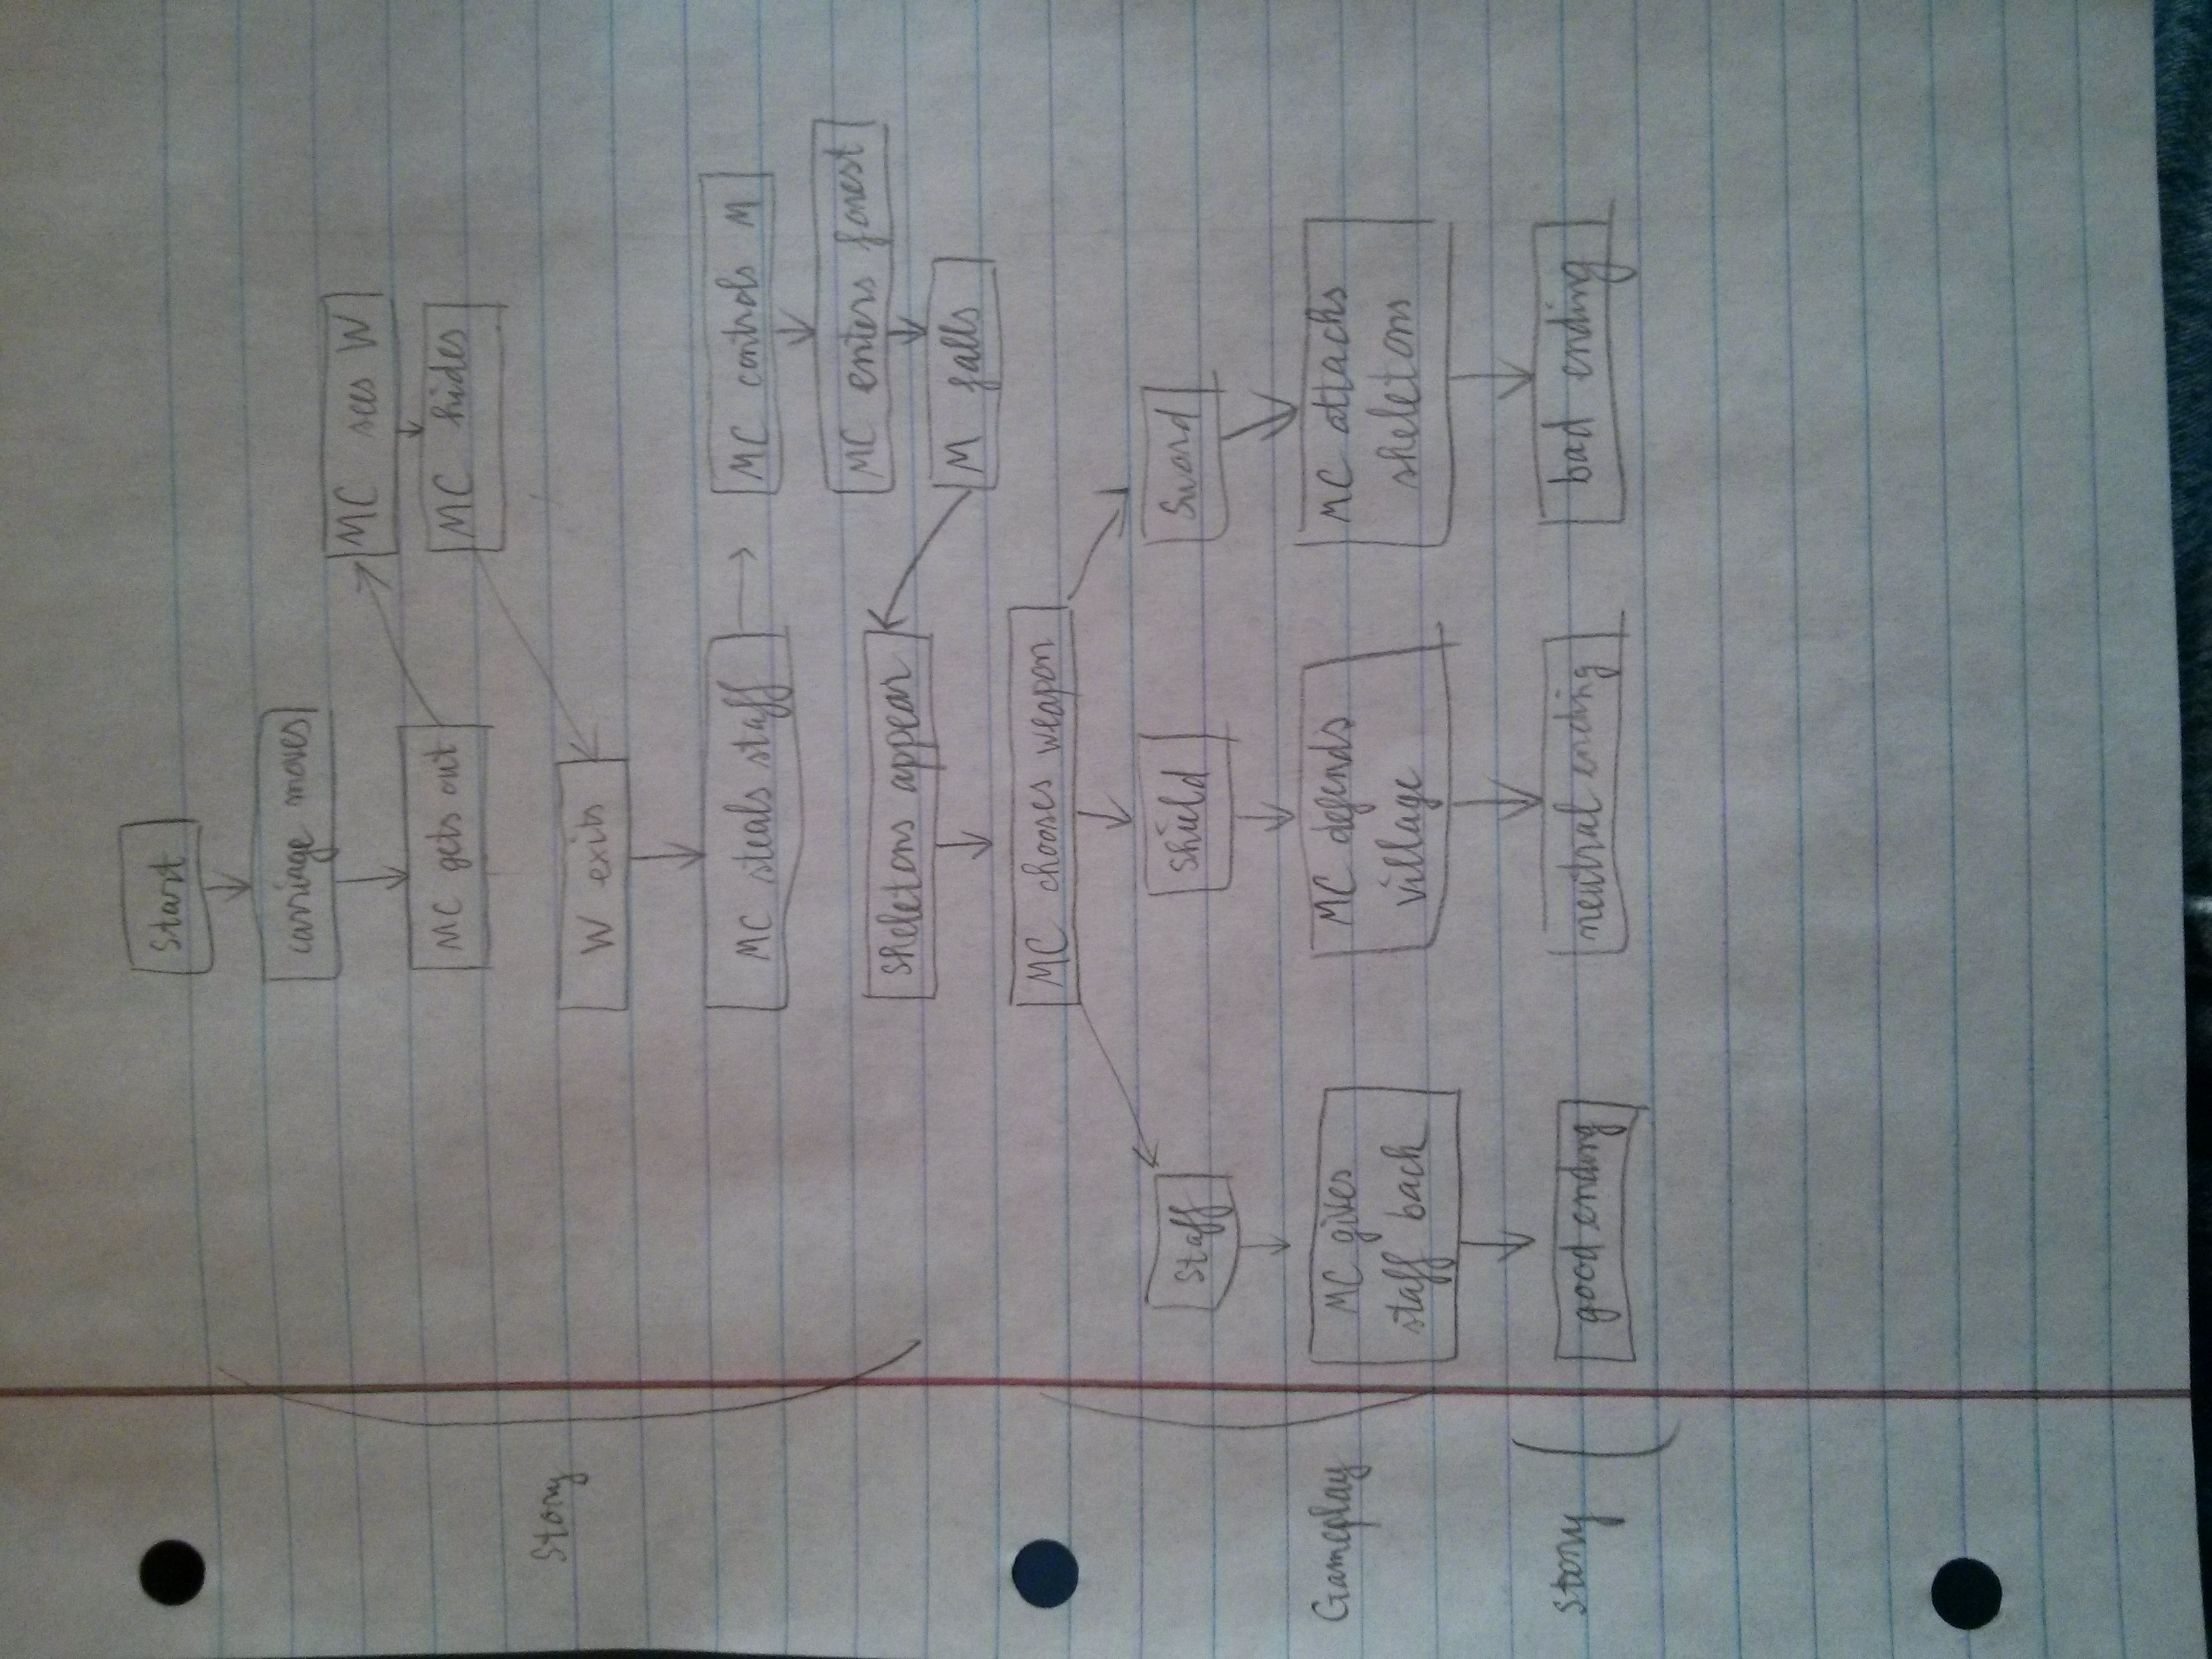 Start
carriage moves
MC gets out
MC sees W
MC hides
W exits
MC steals staff
MC controls M
MC enters forest
M falls
skeletons appear
MC chooses weapon
Staff
Shield
Sword
MC gives
staff back
MC defends
village
MC attacks
skeletons
good ending
neutral ending
bad ending
Story
Gameplay
Story